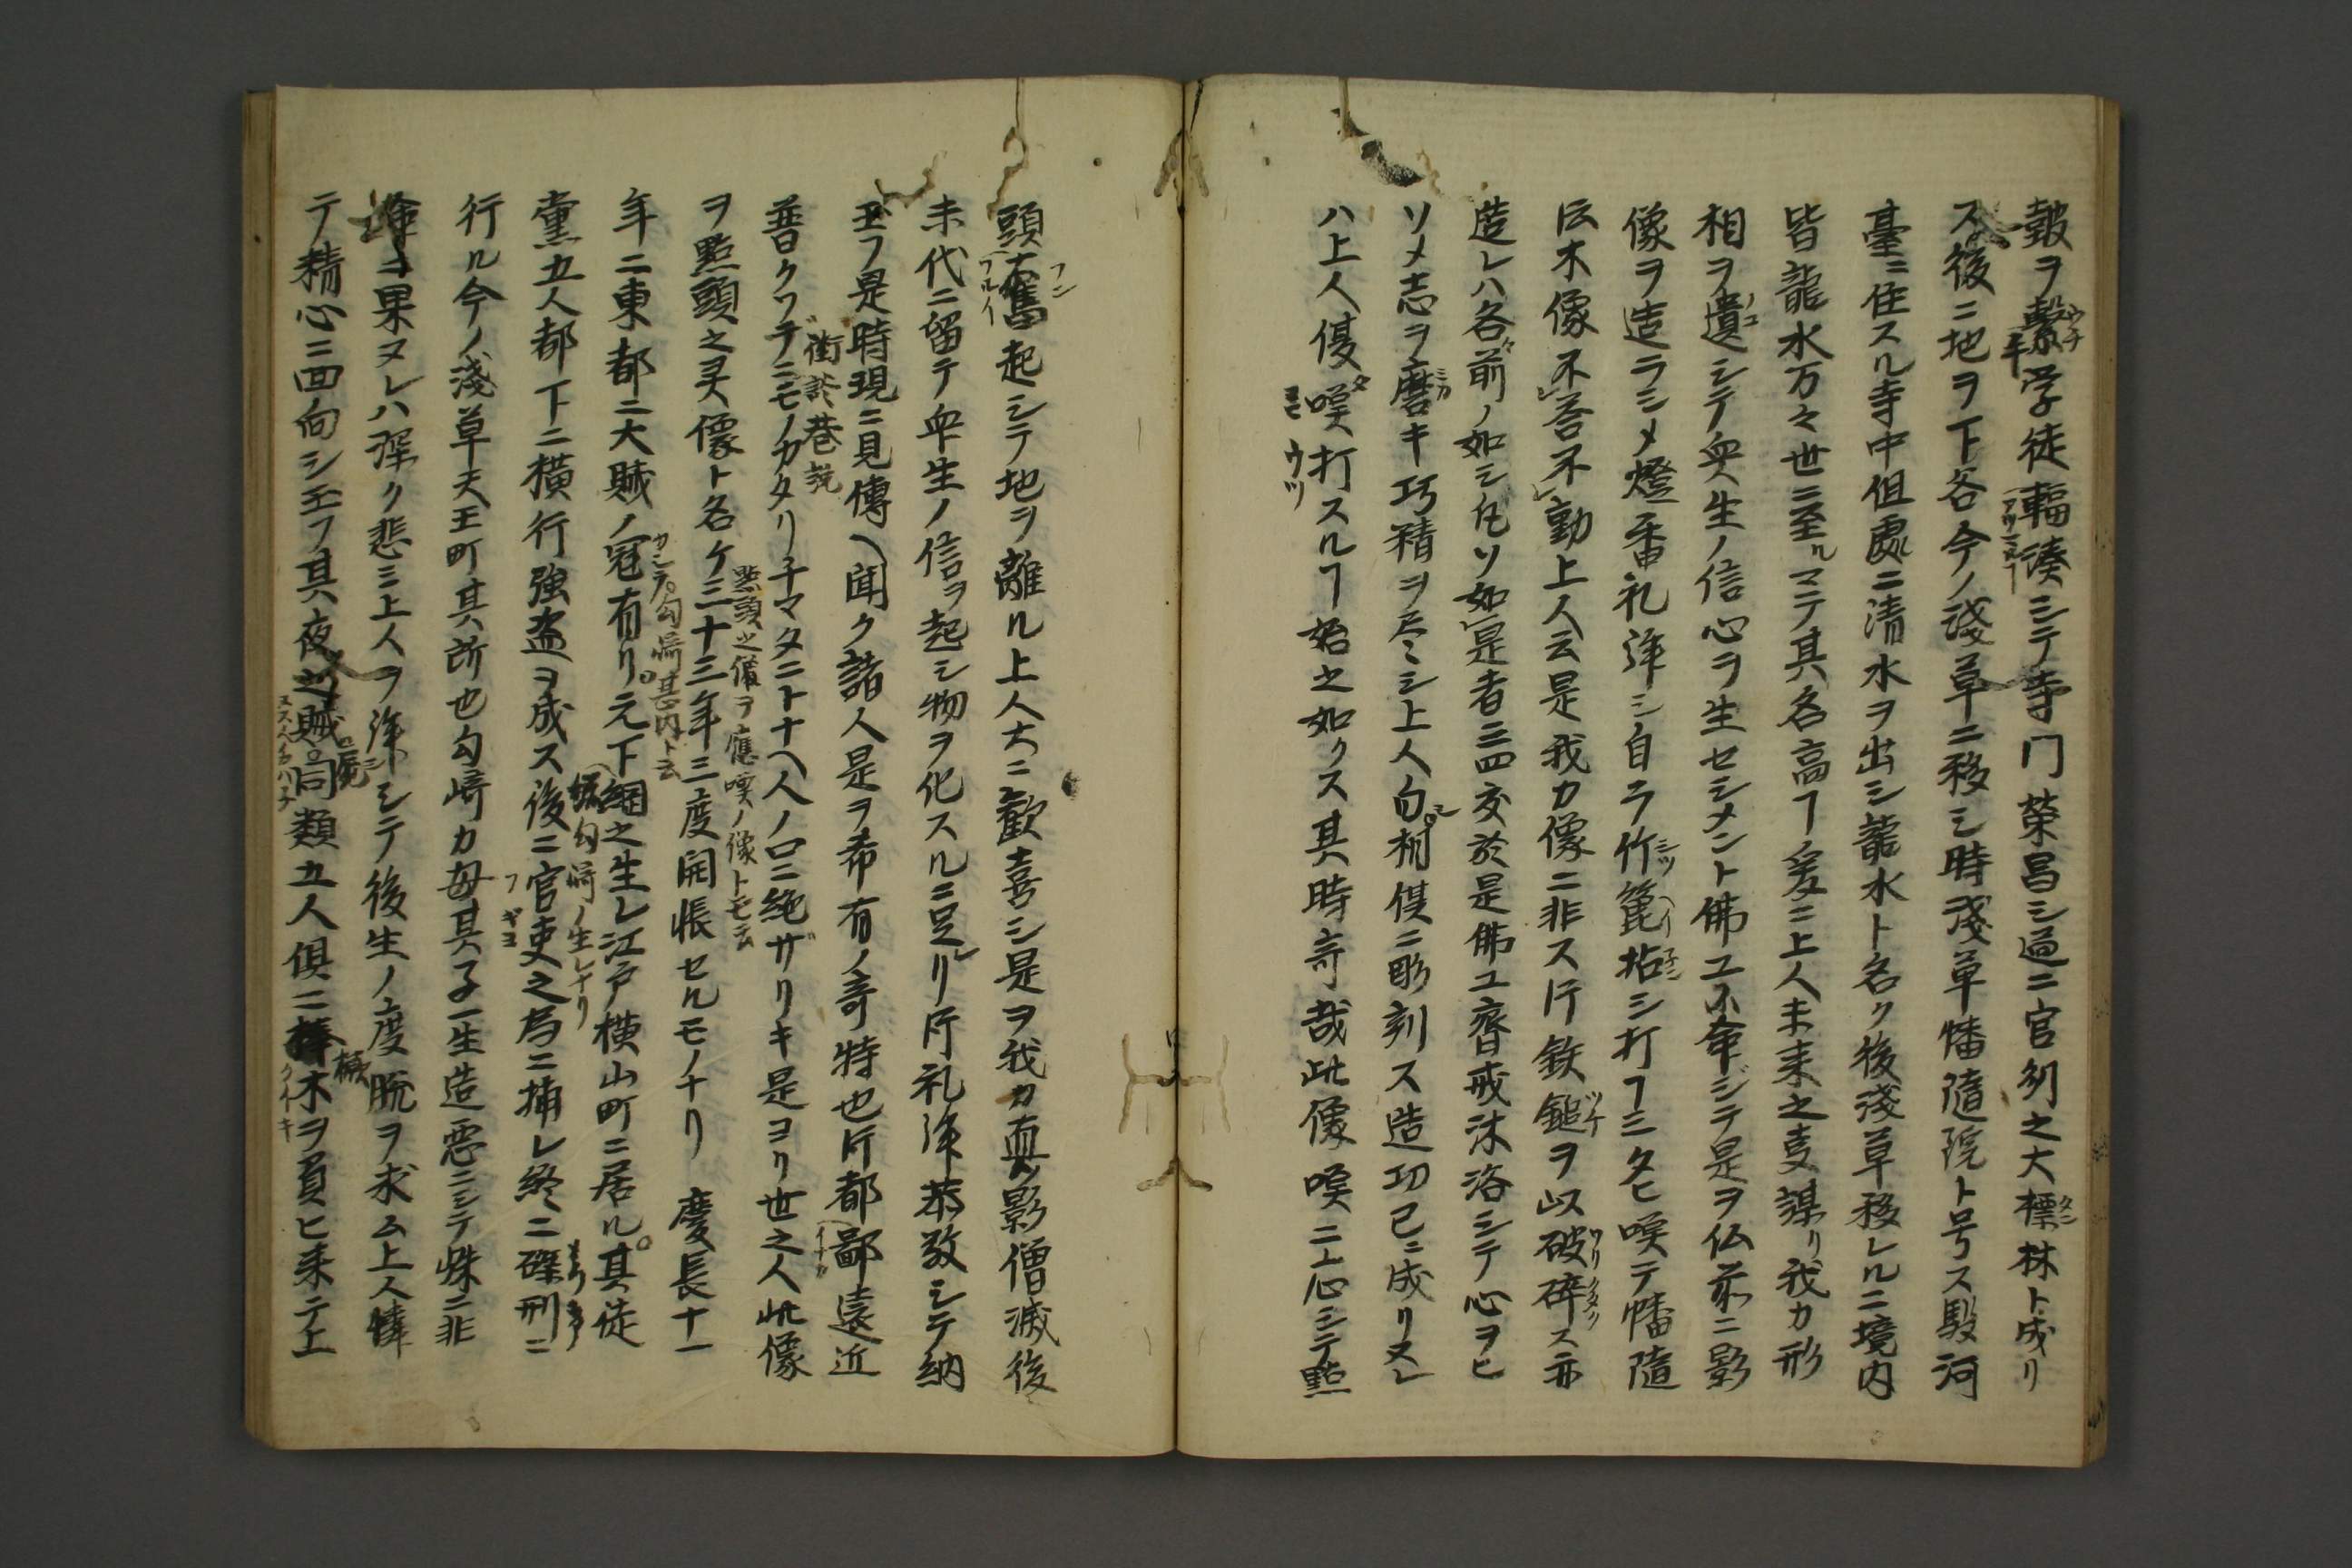 鼓ヲ擊学徒輻湊シテ寺門榮昌シ過ニ官刹之大標林ト成リ
ス後ニ地ヲ下谷今ノ淺草ニ移シ時淺草幡隨院ト号ス駿河
臺ニ住スル寺中但處ニ清水ヲ出シ龍水ト名ク後淺草移レルニ境内
皆龍水万々世ニ至ルマテ其名高ー爰ニ上人未来之叓謀リ我カ形
相ヲ遺シテ衆生ノ信心ヲ生セシメント佛工ニ命ジテ是ヲ仏前ニ影
像ヲ造ラシメ燈香礼拜シ自ラ竹箆拈シ打ーニタヒ嘆テ幡隨
伝木像不答不動上人云是我カ像ニ非ス斤鉄鎚ヲ以破碎ス亦
造レハ各前ノ如シ毛ソ如是者三四交於是佛工齋戒沐浴シテ心ヲヒ
ソメ志ヲ磨キ巧精ヲ尽シ上人自相倶ニ彫刻ス造功已ニ成リヌレ
ハ上人優嘆打スルー始之如クス其時奇哉此像嘆ニ上心シテ點
頭奮起シテ地ヲ離ル上人大ニ歡喜シ是ヲ我カ真影僧滅後
末代ニ留テ衆生ノ信ヲ起シ物ヲ化スルニ足リ斤礼拜恭敬シテ納
玉フ是時現ニ見傳ヘ聞ク諸人是ヲ希有ノ奇特也斤都鄙遠近
街談巷説
普クワデニモノカタリ子マタニトナヘ人ノ口ニ絶ザリキ是ヨリ世之人此像
點頭之像ヲ應嘆ノ像トモ云
ヲ點頭之灵像ト名ケ三十三年三度開帳セルモノナリ 慶長十一
年ニ東都ニ大賊ノ冠有リ元下綱之生レ江戸横山町ニ居ル其徒
勾﨑甚内ト云
勾﨑ノ生レナリ
黨五人都下ニ横行強盗ヲ成ス後ニ官吏之為ニ捕レ終ニ磔刑ニ
行ル今ノ淺草天王町其所也勾﨑カ母其子一生造悪ニシテ殊ニ非
命ニ果ヌレハ深ク悲ミ上人ヲ拜シテ後生ノ度脱ヲ求ム上人憐
テ精心ニ回向シ玉フ其夜賊同類五人倶ニ木ヲ負ヒ来テ上